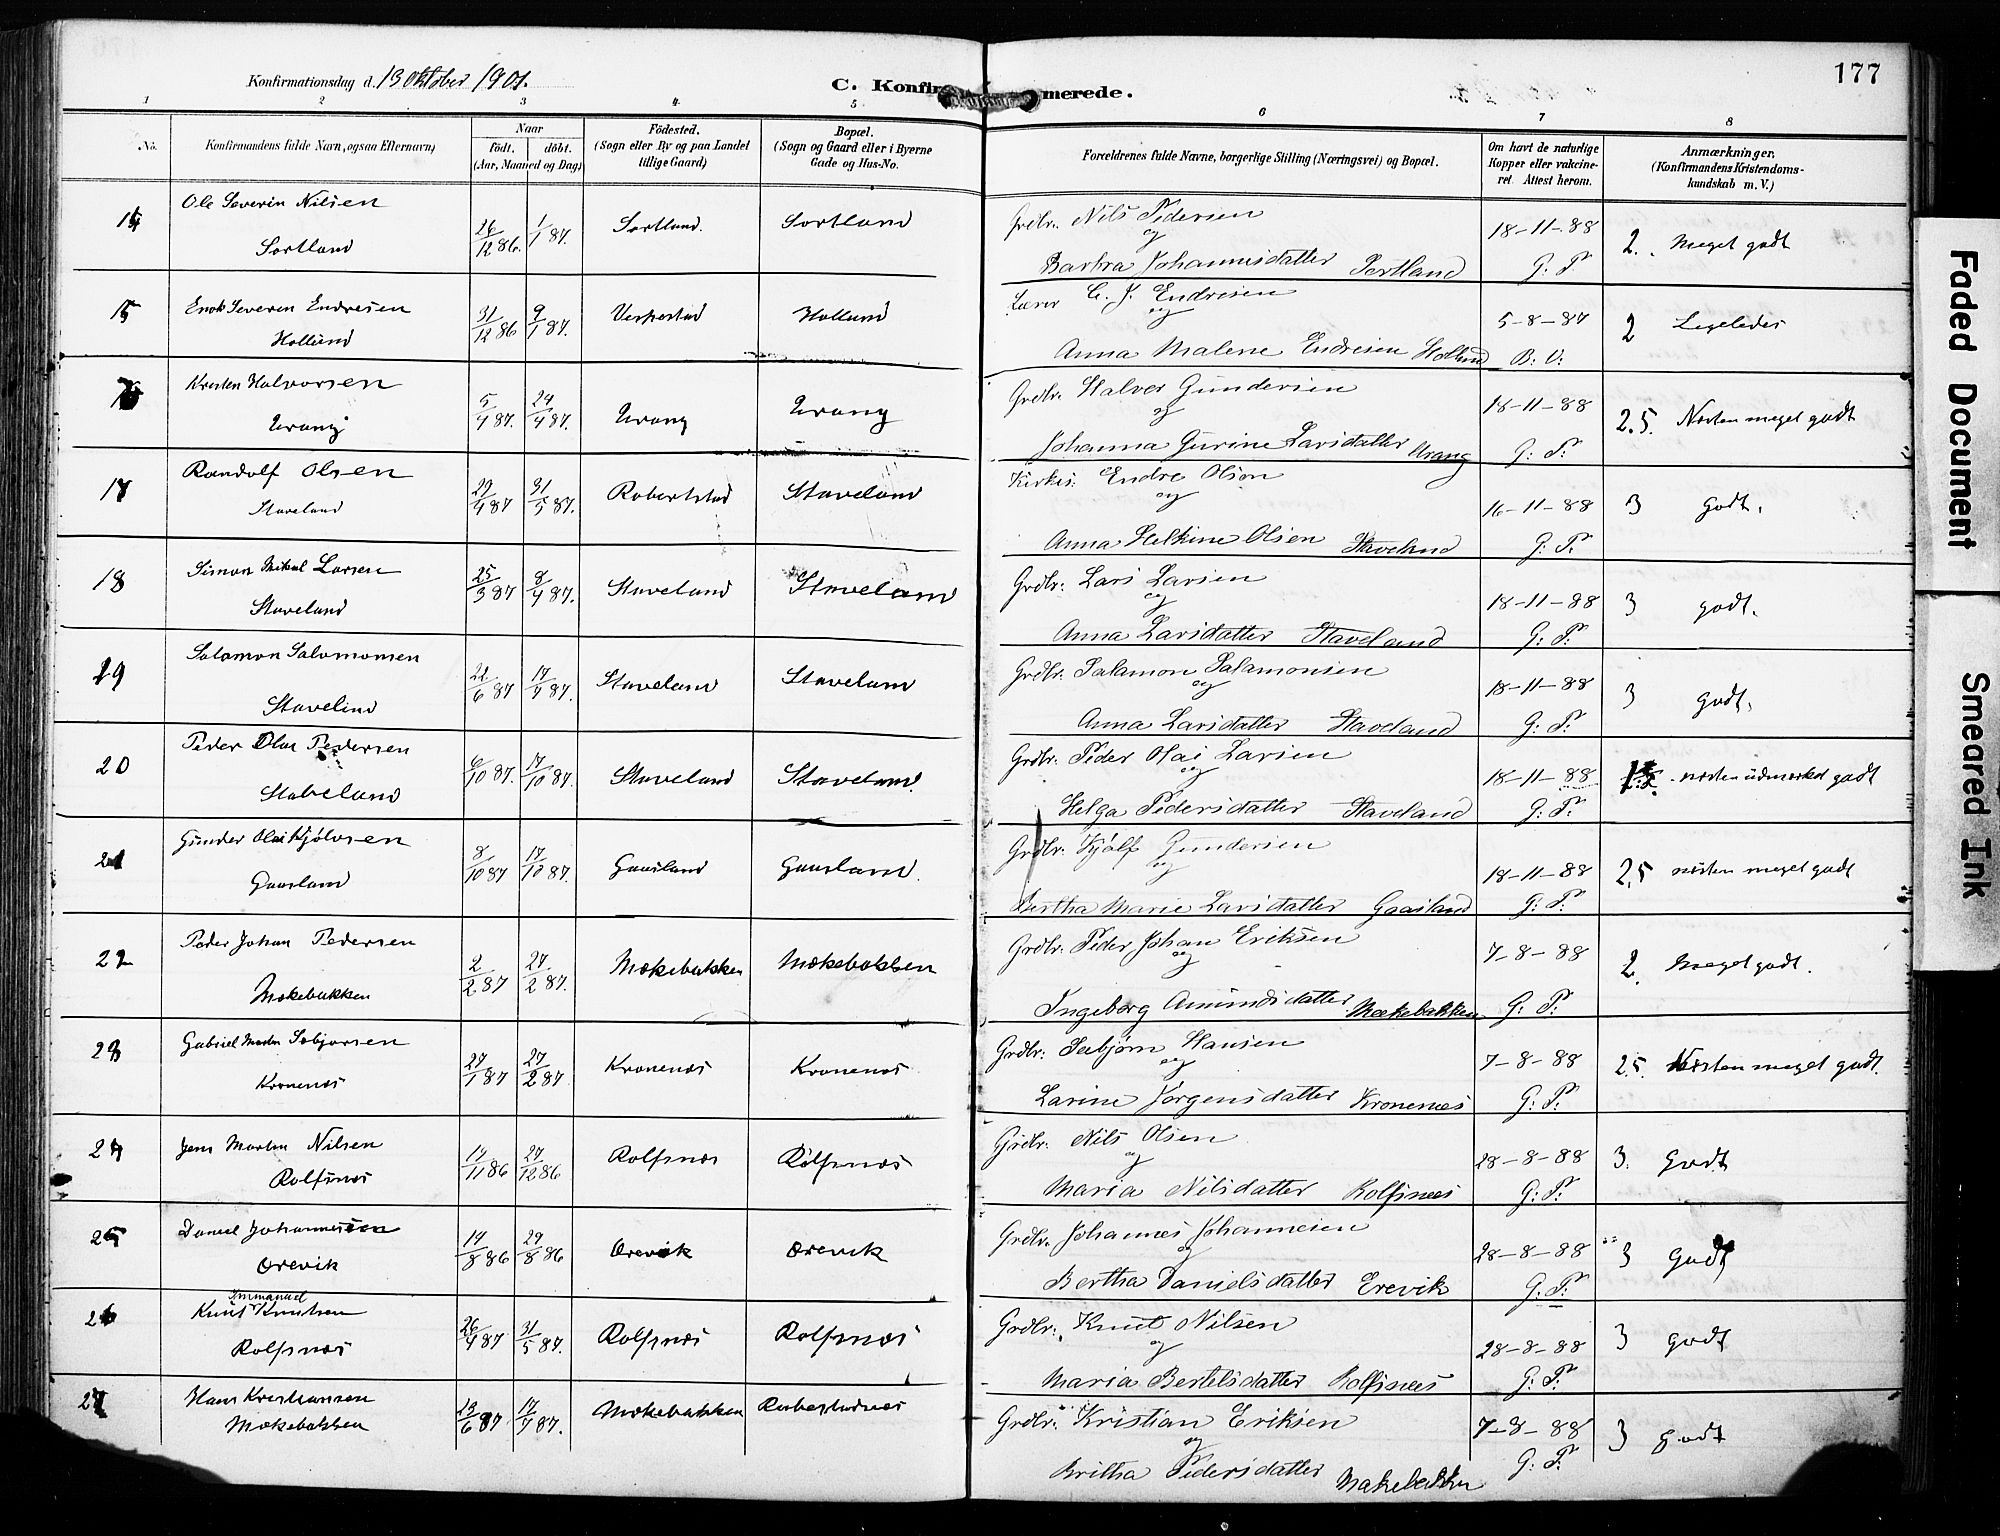 177
Konfirmationsdag d. 13 Oktober 1901.
C. Konfir merede.
1 2 3 4 5 6 7 8
No. Konfirmandens fulde Navn, ogsaa Efternavn) Naar født. døbt. (Aar, Maaned og Dag) Fødested. (Sogn eller By og paa Landet tillige Gaard) Bopæl. (Sogn og Gaard eller i Byerne Gade og Hus-No. Forældrenes fulde Navne, borgerlige Stilling (Næringsvei) og Bopæl. Om havt de naturlige Kopper eller vakcineret. Attest herom. Anmærkninger. (Konfirmandens Kristendomskundskab m. V.)
Ole Severin Nilsen Grdbr. Nils Pedersen
Sortland 26/12 86. 1/1 87. Sortland. Sortland og 18-11-88 2. Meget godt
Barbra Johannesdatter Sortland G. P.
15 Enok Severin Endresen 31/12 86 9/1 87. Vespestad Holland Lærer E. J. Endresen 5-8-87 2 Ligeledes
Hollund og
Anna Malene Endresen Hollund B. V.
Kristen Halvorsen 5/4 87. 24/4 87. Urang Urang Grdbr. Halver Gundersen 18-11-88 2.5. Næsten meget godt
Urang og
Johanna Gurine Larsdatter Urang G. P.
17 Randolf Olsen 29/4 87 31/5 87. Robertstad Staveland Kirkes. Endre Olson 16-11-88 3 godt.
Staveland og
Anna Helkine Olsen Staveland G. P.
18 Simon Mikal Larsen 25/3 87 8/4 87. Staveland Staveland Grdbr. Lars Larsen 18-11-88 3 godt.
Staveland og
Anna Larsdatter Staveland G. P.
19 Salamon Salomonsen 22/6 87 17/7 87. Staveland Staveland Grdbr. Salamon Salamonsen 18-11-88 3 godt.
Staveland og
Anna Larsdatter Staveland G. P.
20 Peder Olai Pedersen 6/10 87. 17/10 87. Staveland Staveland. Grdbr. Peder Olai Larsen 18-11-88 1.5. næsten udmærket godt
Stabeland og
Helga Pedersdatter Staveland G. P.
21 Gunder Olai Kjølvsen 8/10 87 17/10 87. Gaasland Gaasland. Grdbr. Kjølf Gundersen 18-11-88 2,5 næsten meget godt
Gaasland og
Bertha Marie Larsdatter Gaasland G. P.
22 Peder Johan Pedersen 2/2 87 27/2 87. Mækebakken Mækebakken Grdbr. Peder Johan Eriksen 7-8-88 2. Meget godt.
Mækebakken og
Ingeborg Amundsdatter Mækebakken G. P.
23 Gabriel Martin Sebjørsen 27/1 87 27/2 87. Kronenæs Kronenæs Grdbr. Sebjørn Hansen 7-8-88 2.5. Næsten meget godt.
Kronenæs og
Larine Jørgensdatter Kronenæs G. P.
24 Jens Martin Nilsen 17/11 86 27/12 86 Rolfsnæs Rolfsnæs Grdbr. Nils Olsen 28-8-88 3. Godt
Rolfsnæs og
Maria Nilsdatter Rolfsnæs G. P.
25 Daniel Johannessen 14/8 86 29/8 86 Ærevik Ærevik Grdbr. Johannes Johannesen 28-8-88 3 Godt
Ærevik og
Bertha Danielsdatter Erevik G. P.
26 Knut Emmanuel Knutsen 26/4 87 31/5 87. Rolfsnæs Rolfsnæs Grdbr. Knut Nilsen 28-8-88 3 godt
Rolfsnæs og
Maria Bertelsdatter Rolfsnæs G. P.
27 Hans Kristiansen 13/6 87 17/7 87. Mækebakken Robertsnæs Grdbr. Kristian Eriksen 7-8-88 3 godt
Mækebakken og
Britha Pedersdatter Makebakken G. P.
Faded Document
Smeared Ink